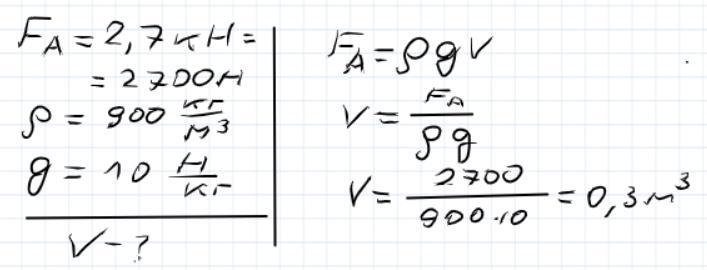 F_A = 2,7 кН =
= 2700Н
ρ = 900 кг/м³
g = 10 Н/кг
V - ?
F_A = ρgV
V = F_A/ρg
V = 2700/900·10 = 0,3 м³